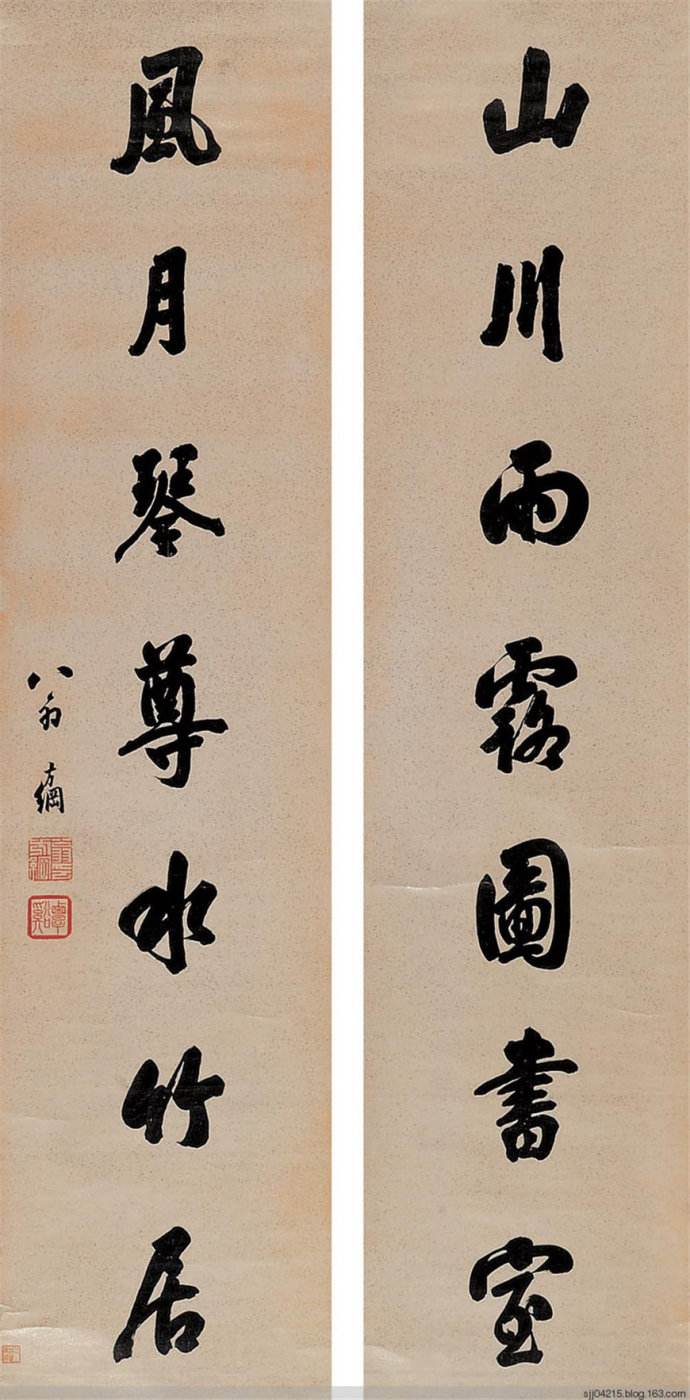 山川雨露圖書室
風月琴尊水竹居
八翁方綱
sjj04215.blog.163.com